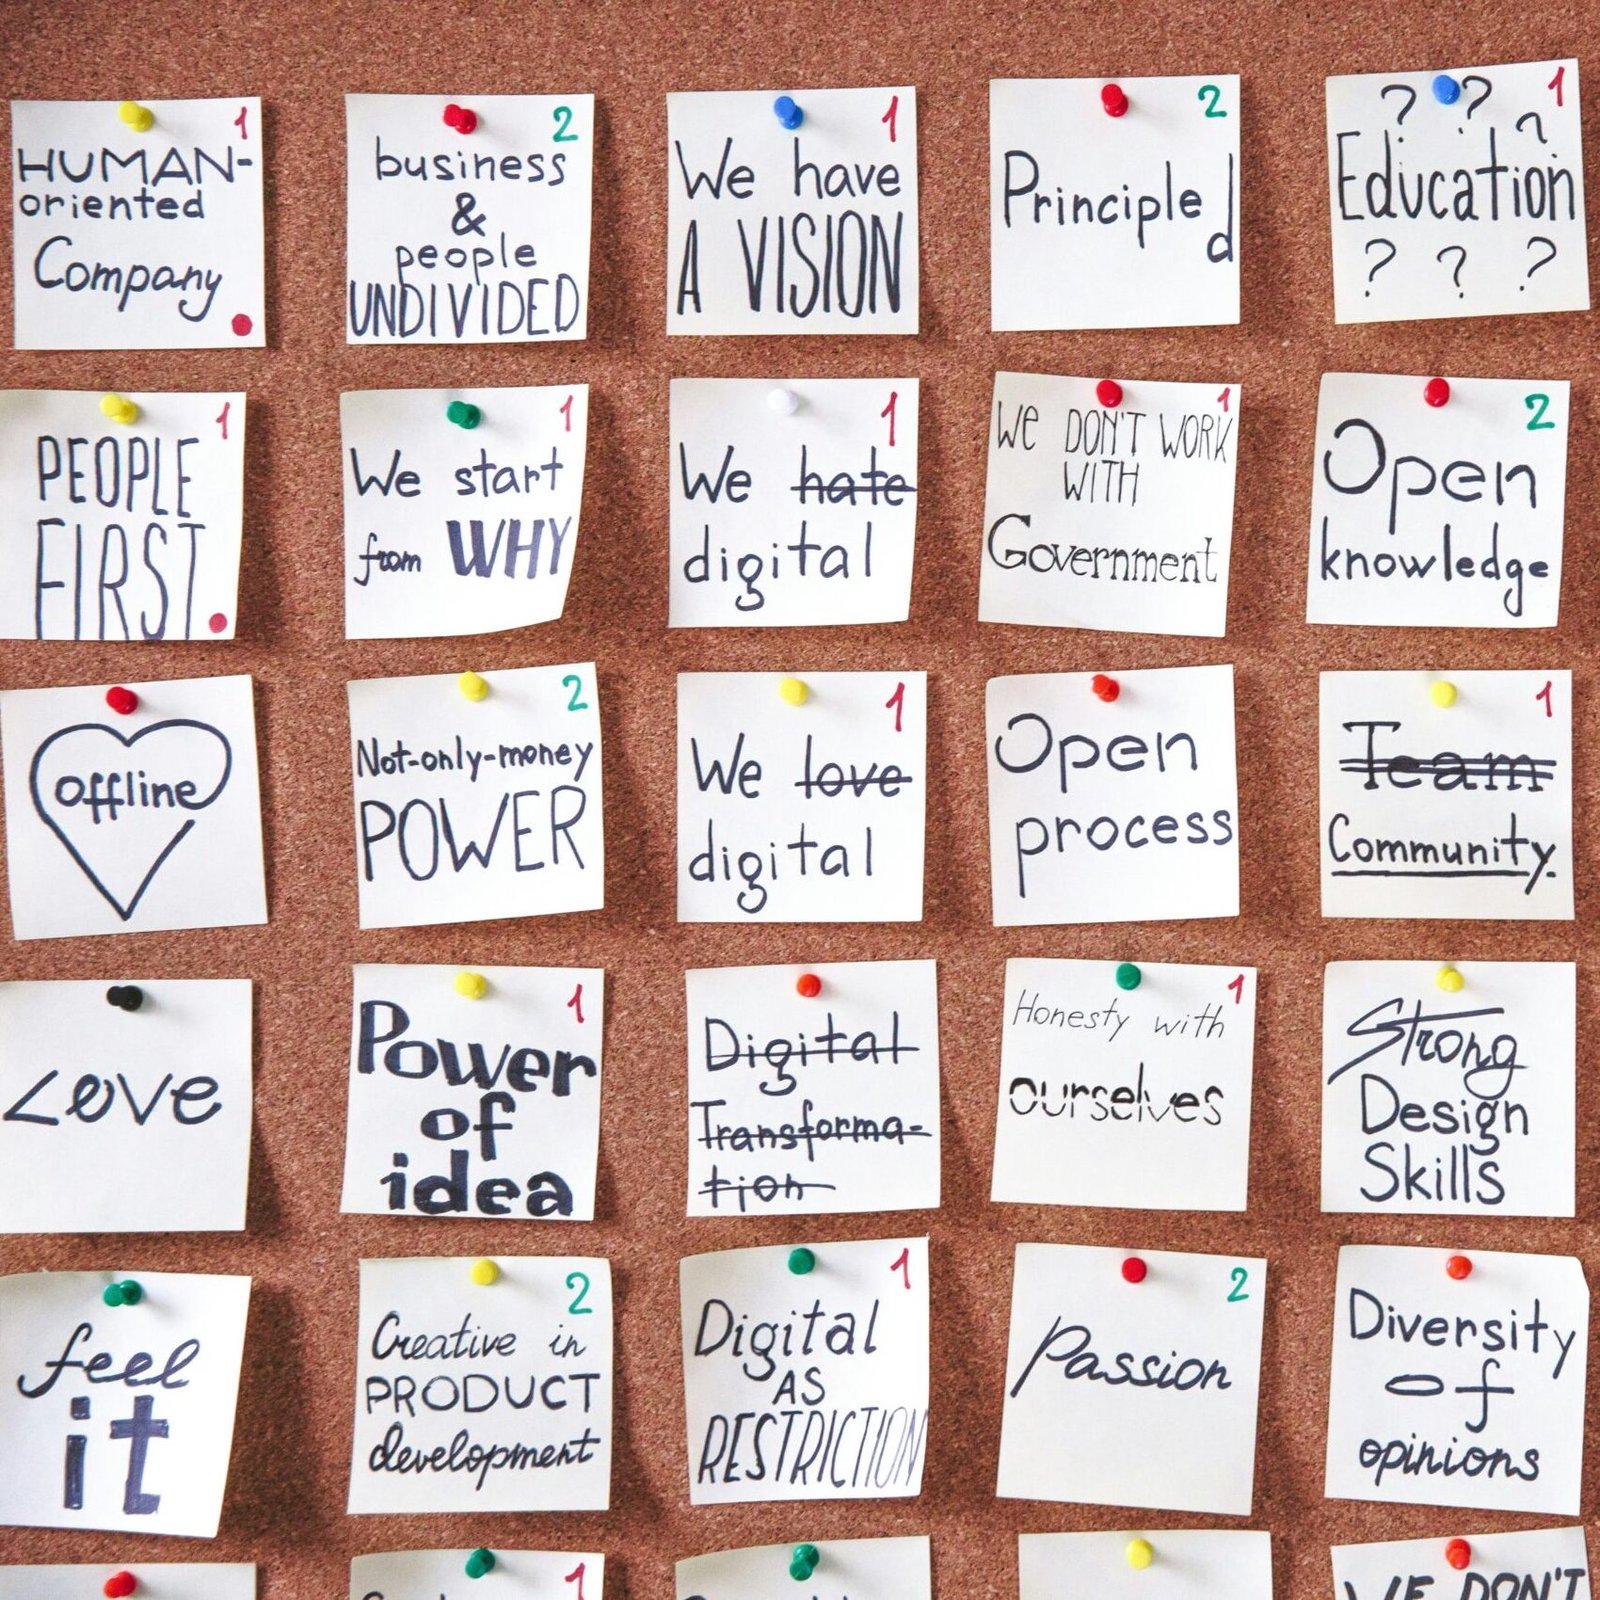 1
HUMAN-
oriented
Company
2
business
&
people
UNDIVIDED
1
We have
A VISION
2
Principled
1
? ? ?
Education
? ? ?
1
PEOPLE
FIRST
1
We start
from WHY
1
We hate
digital
1
We DON'T WORK
WITH
Government
2
Open
knowledge
offline
2
Not-only-money
POWER
1
We love
digital
Open
process
1
Team
Community.
Love
1
Power
of
idea
Digital
Transforma-
tion
1
Honesty with
ourselves
Strong
Design
Skills
feel
it
2
Creative in
PRODUCT
development
1
Digital
AS
RESTRICTION
2
Passion
Diversity
of
opinions
1
WE DON'T